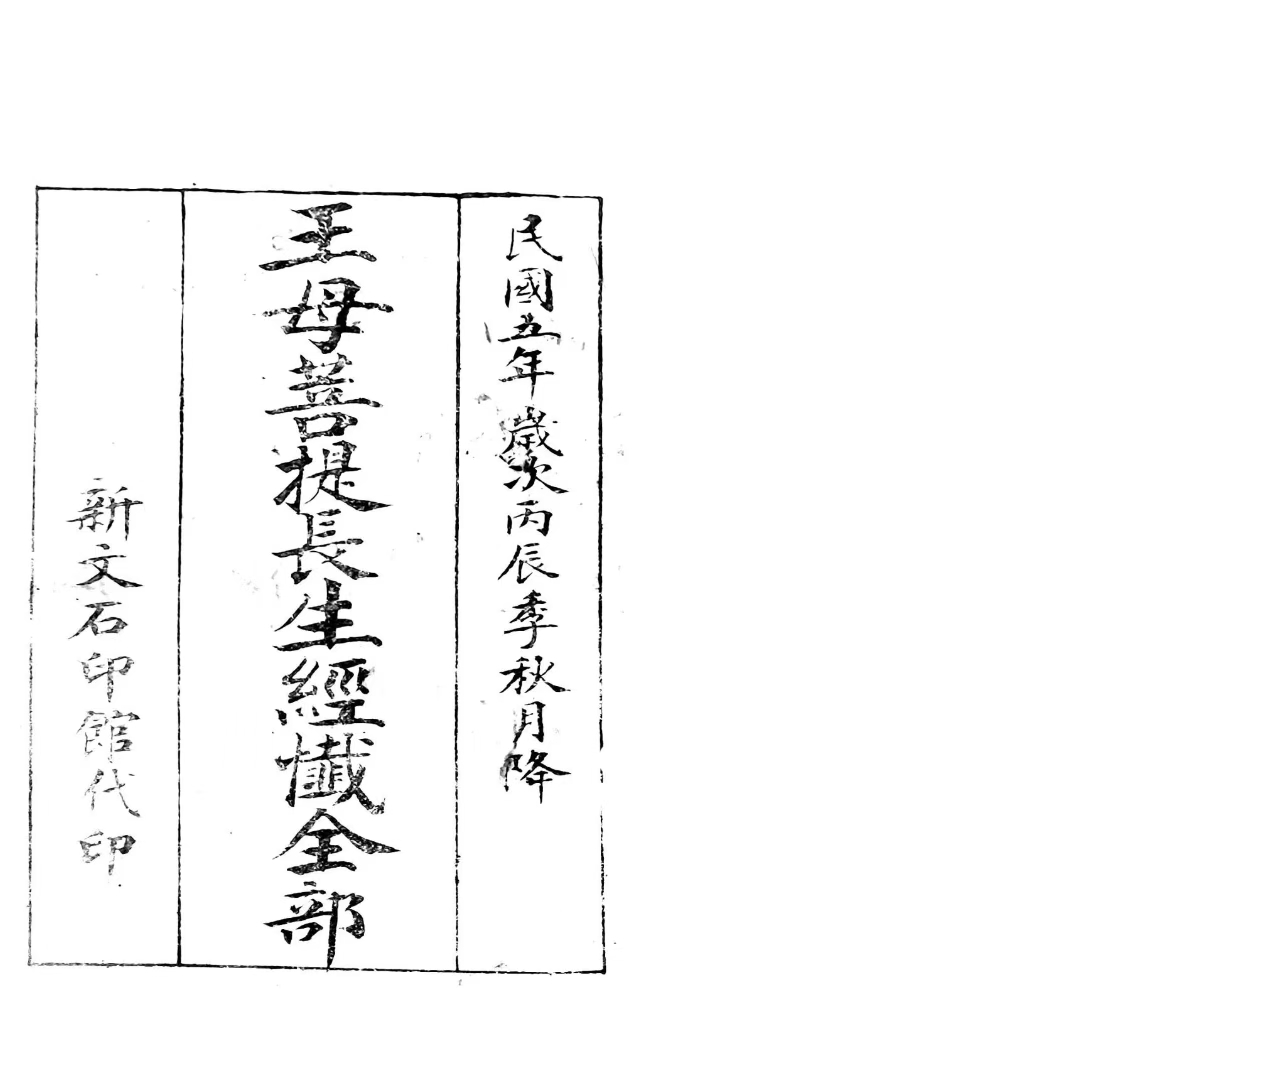 民國五年歲次丙辰季秋月降
王母菩提長生經懺全部
新文石印館代印